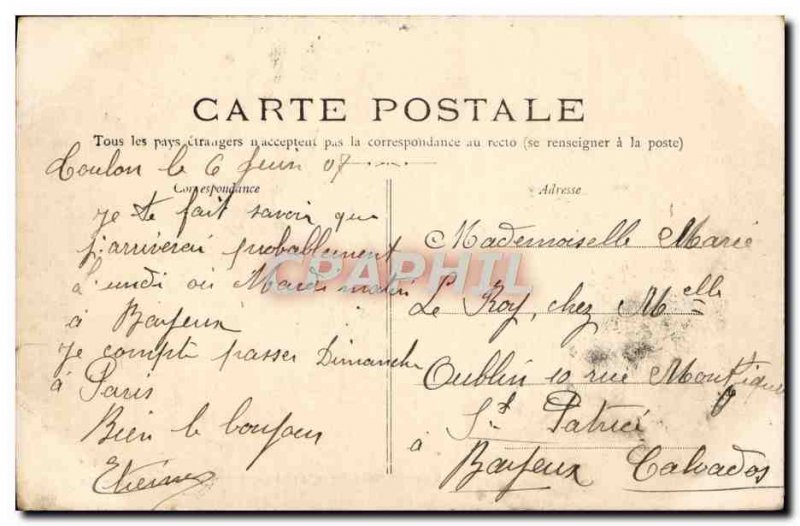 CARTE POSTALE
Tous les pays étrangers n'acceptent pas la correspondance au recto (se renseigner à la poste)
Toulon le 6 Juin 07
Correspondance
Je te fait savoir que
j'arriverai probablement
à lundi ou Mardi matin
à Bayeux
Je compte passer Dimanche
à Paris
Bien le bonjour
Etienne
Adresse
Mademoiselle Marie
Le Roy, chez Melle
Oublin 10 rue
St Patrice
à Bayeux Calvados
CPAPHIL